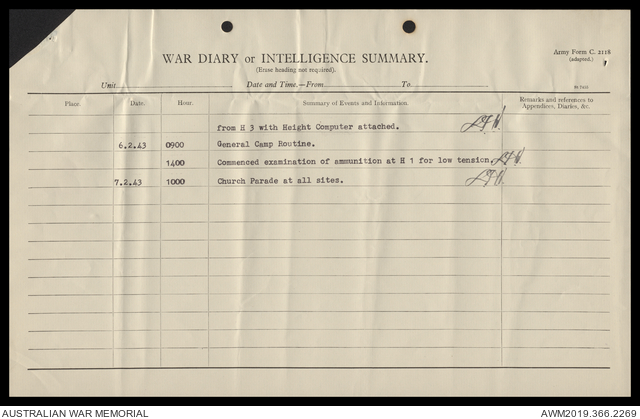 Army Form C. 2118
(adapted.)
WAR DIARY or INTELLIGENCE SUMMARY.
(Erase heading not required).
Unit Date and Time.—From To
Place. Date. Hour. Summary of Events and Information. Remarks and references to
Appendices, Diaries, &c.
from H 3 with Height Computer attached.
6.2.43 0900 General Camp Routine.
1400 Commenced examination of ammunition at H 1 for low tension.
7.2.43 1000 Church Parade at all sites.
AUSTRALIAN WAR MEMORIAL AWM2019.366.2269